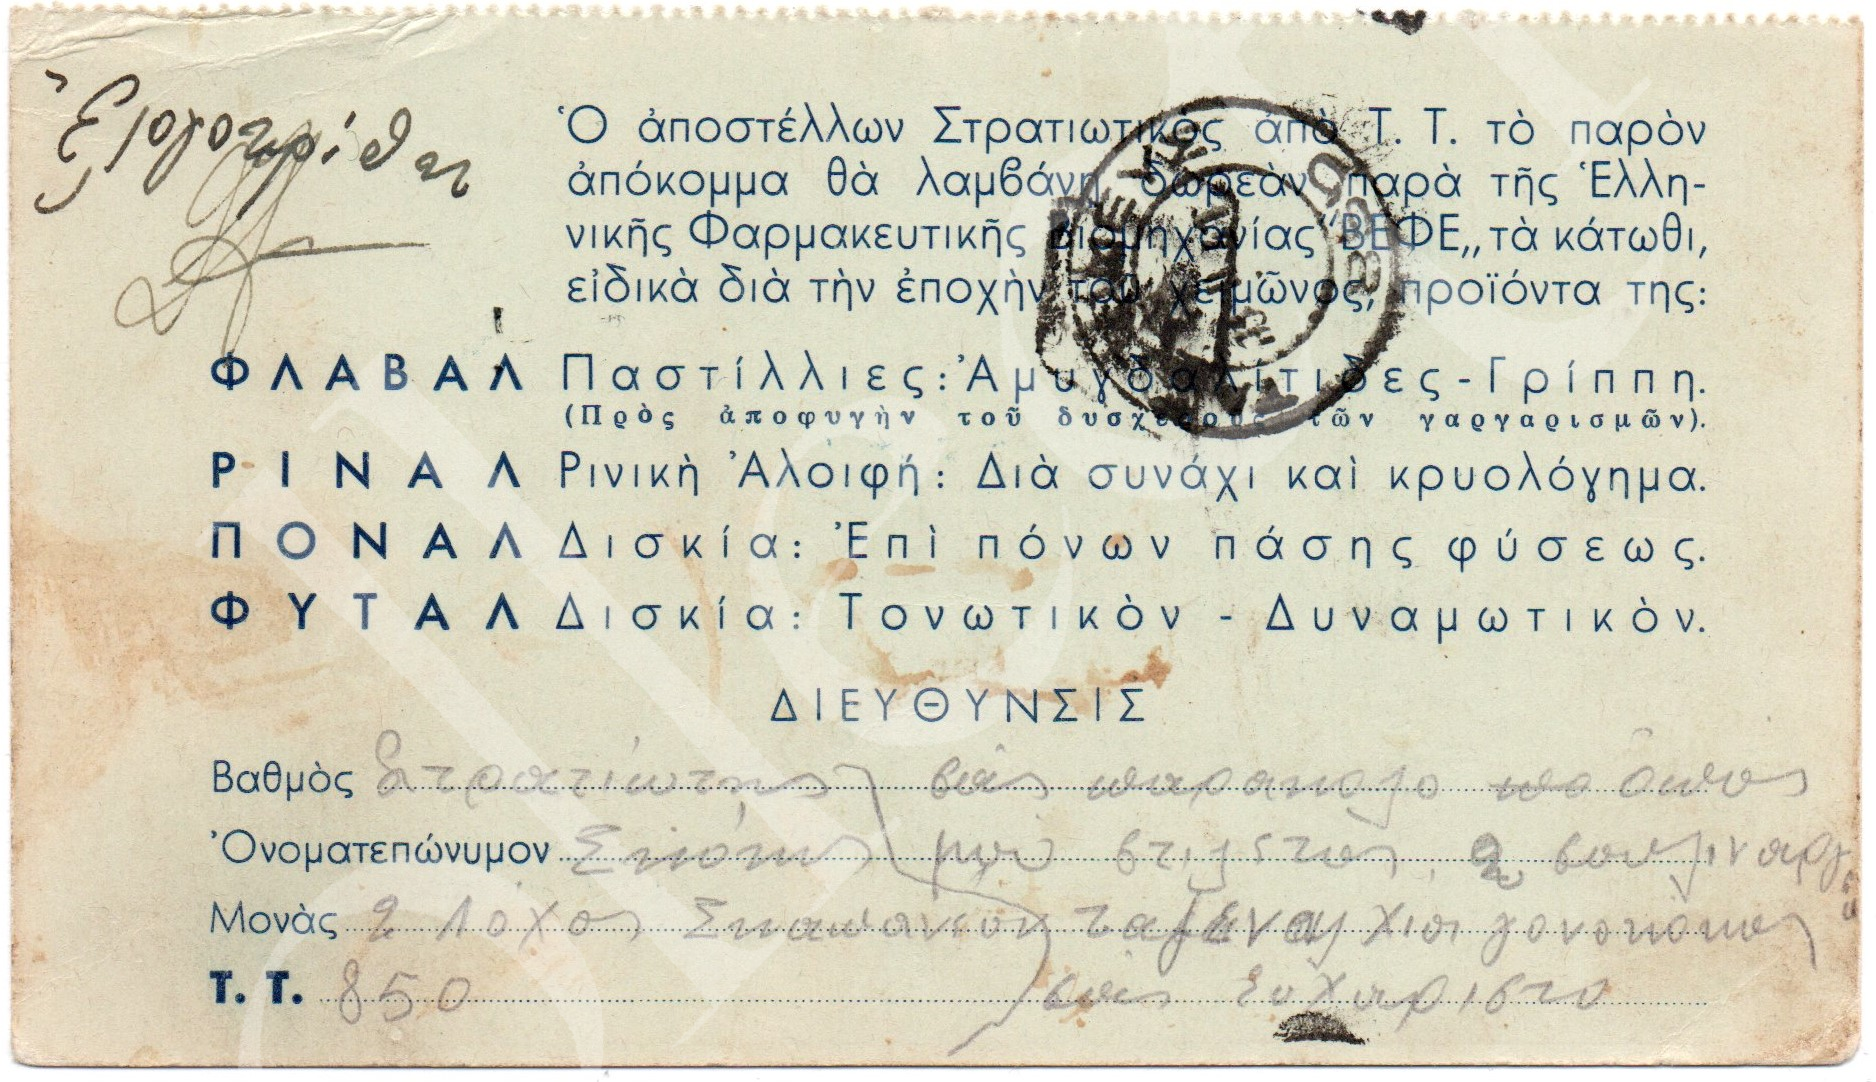 Ἐλογοκρίθη
Ὁ ἀποστέλλων Στρατιωτικὸς ἀπὸ Τ. Τ. τὸ παρὸν
ἀπόκομμα θὰ λαμβάνῃ δωρεὰν παρὰ τῆς Ἑλλη-
νικῆς Φαρμακευτικῆς Βιομηχανίας "ΒΕΦΕ„ τὰ κάτωθι,
εἰδικὰ διὰ τὴν ἐποχὴν τοῦ χειμῶνος, προϊόντα της:
ΦΛΑΒΑΛ Παστίλλιες: Ἀμυγδαλίτιδες - Γρίππη.
(Πρὸς ἀποφυγὴν τοῦ δυσχεροῦς τῶν γαργαρισμῶν).
ΡΙΝΑΛ Ρινικὴ Ἀλοιφή: Διὰ συνάχι καὶ κρυολόγημα.
ΠΟΝΑΛ Δισκία: Ἐπὶ πόνων πάσης φύσεως.
ΦΥΤΑΛ Δισκία: Τονωτικὸν - Δυναμωτικὸν.
ΔΙΕΥΘΥΝΣΙΣ
Βαθμὸς Στρατιώτης σᾶς παρακαλο
Ὀνοματεπώνυμον μοῦ 2
Μονὰς 2 Λόχος Σκαπανέων
Τ. Τ. 850 σᾶς εὐχαριστο